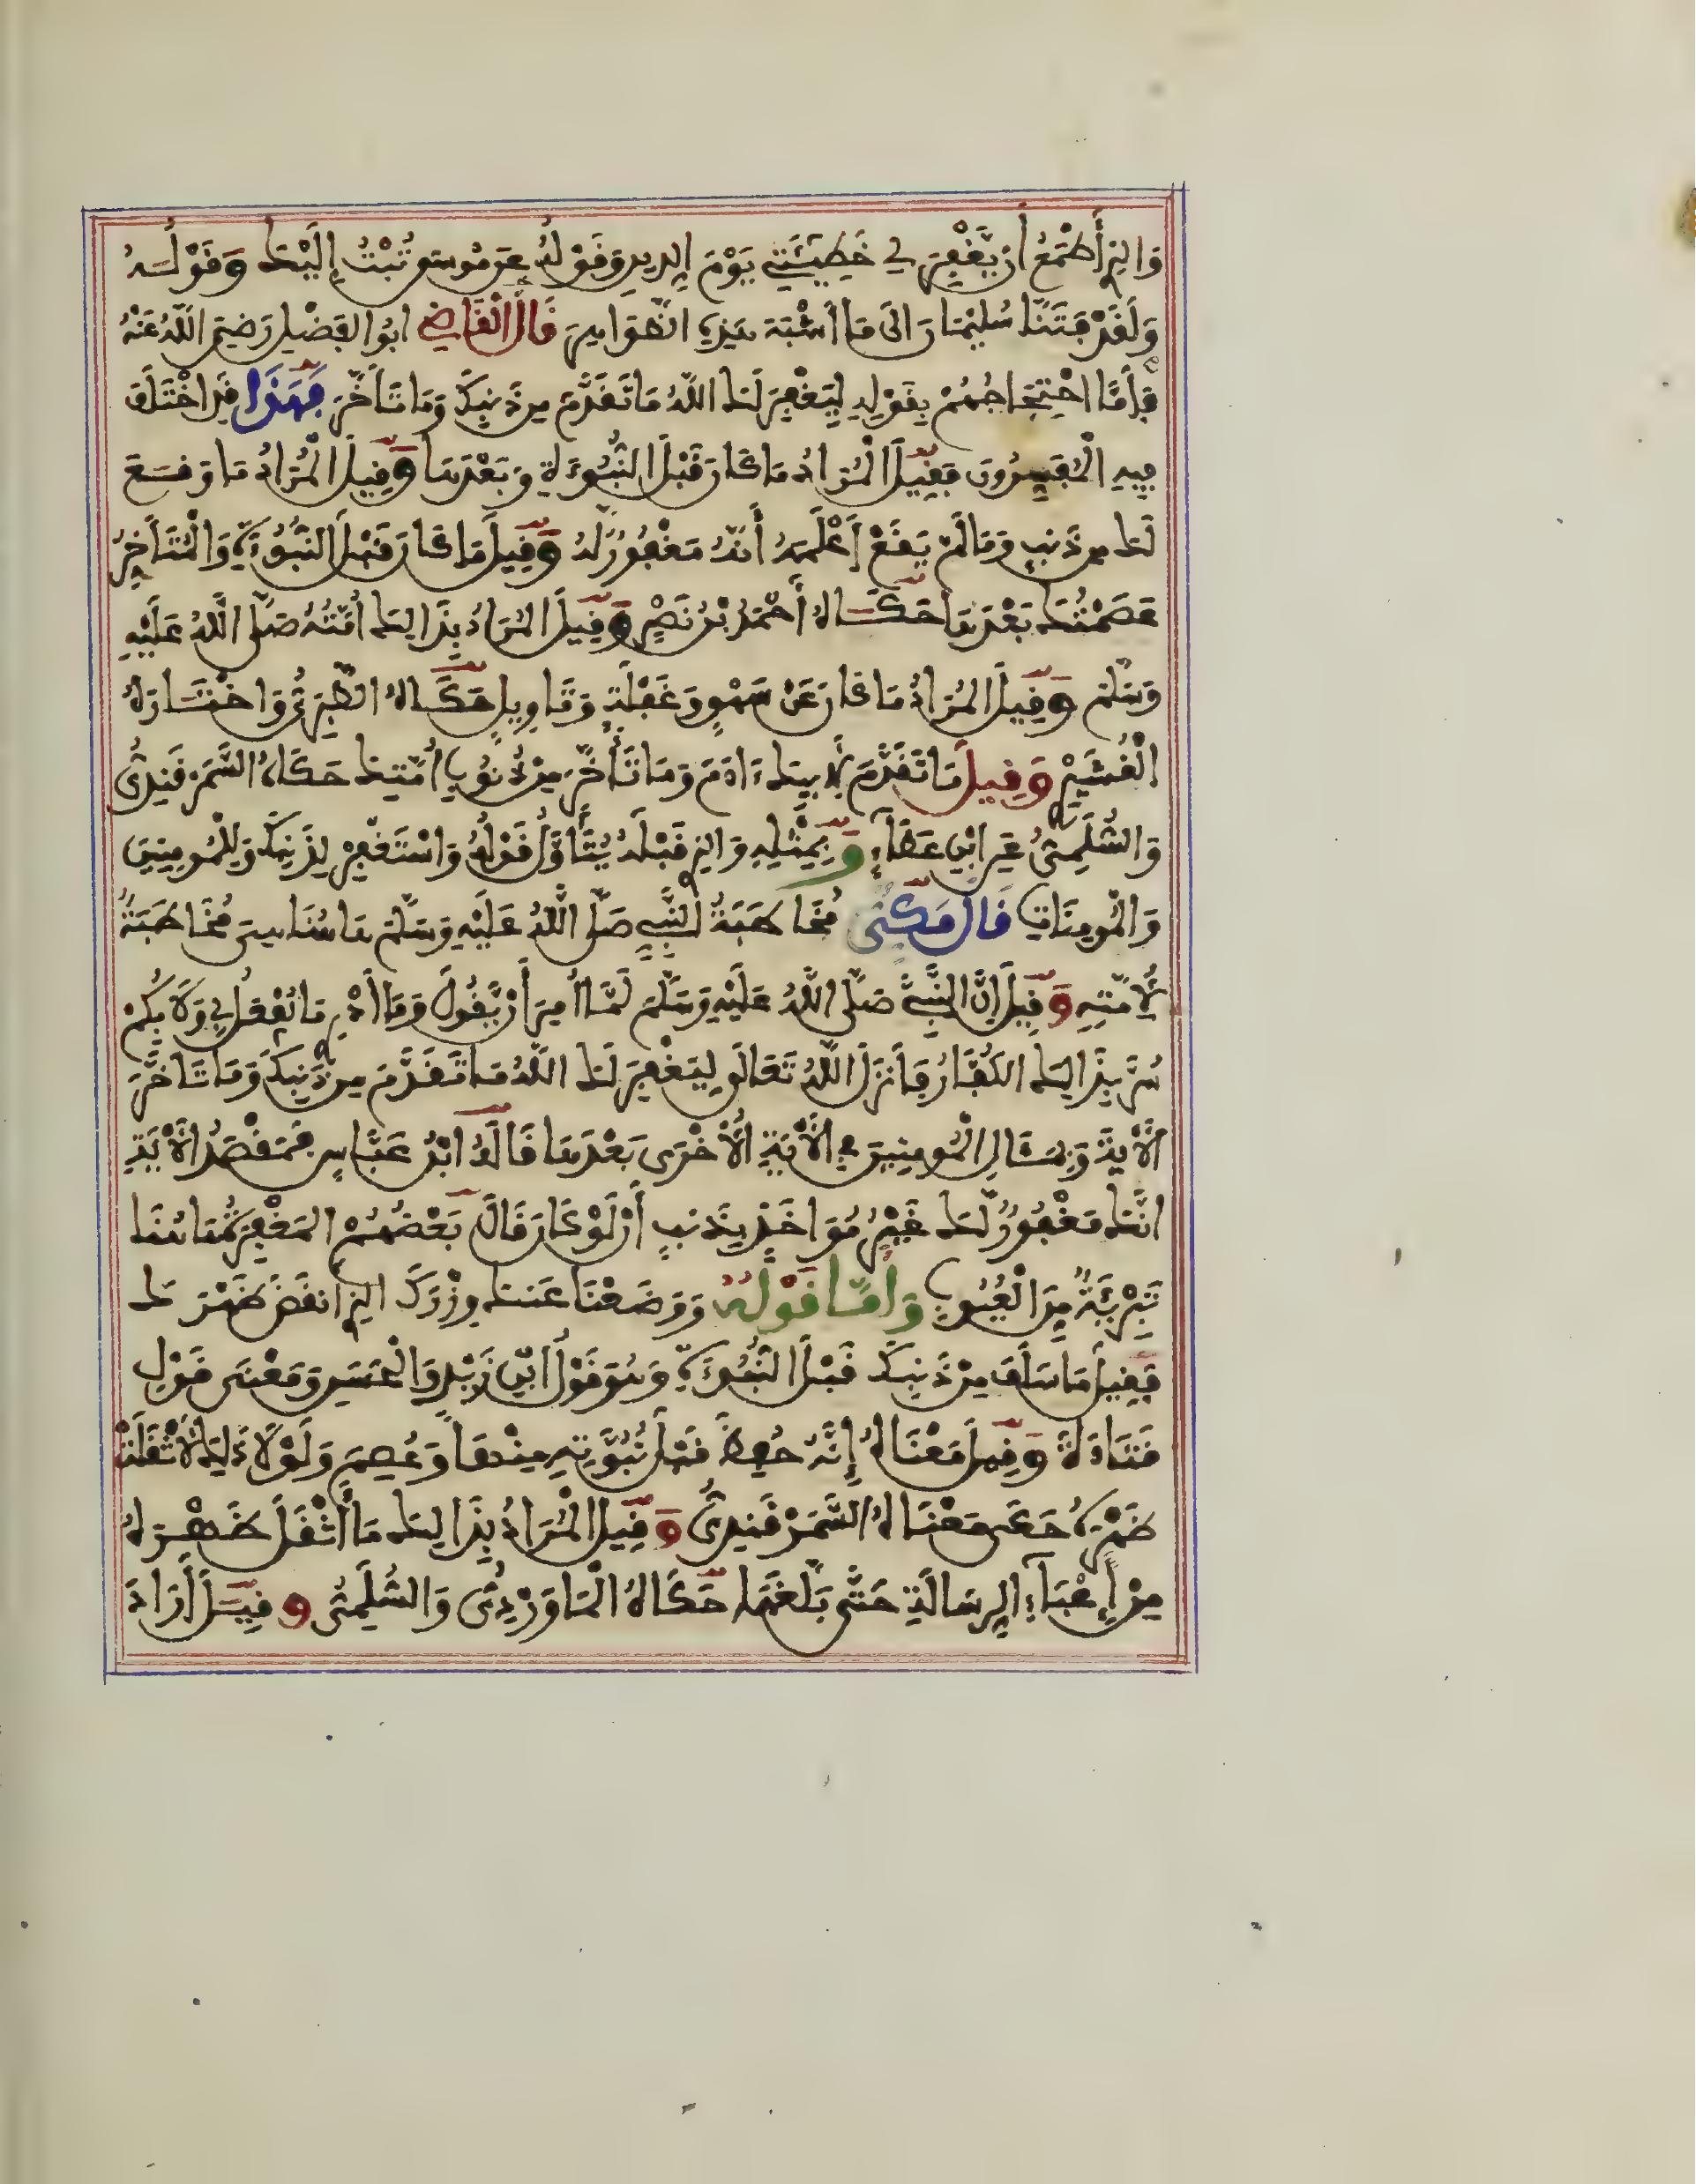 وَالذِي أَطْمَعُ أَن يَّغْفِرَ لِي خَطِيـَٔتِي يَوْمَ الدِّينِ وَقَوْلُهُ عَن مُوسَى تُبْتُ إِلَيْكَ وَقَوْلُهُ
وَلَقَدْ فَتَنَّا سُلَيْمَانَ إِلَى مَا أَشْبَهَ هَذِهِ الظَّوَاهِرَ قَالَ الْقَاضِي أَبُو الْفَضْلِ رَضِيَ اللَّهُ عَنْهُ
فَأَمَّا احْتِجَاجُهُمْ بِقَوْلِهِ لِيَغْفِرَ لَكَ اللَّهُ مَا تَقَدَّمَ مِن ذَنبِكَ وَمَا تَأَخَّرَ فَهَذَا قَدِ اخْتَلَفَ
فِيهِ الْمُفَسِّرُونَ فَقِيلَ الْمُرَادُ مَا كَانَ قَبْلَ النُّبُوءَةِ وَبَعْدَهَا وَقِيلَ الْمُرَادُ مَا وَقَعَ
لَكَ مِن ذَنبٍ وَمَا لَمْ يَقَعْ أَعْلَمَهُ أَنَّهُ مَغْفُورٌ لَهُ وَقِيلَ مَا كَانَ قَبْلَ النُّبُوءَةِ وَالْمُتَأَخِّرُ
عِصْمَتُكَ بَعْدَهَا حَكَاهُ أَحْمَدُ بْنُ نَصْرٍ وَقِيلَ الْمُرَادُ بِذَالِكَ أُمَّتُهُ صَلَّى اللَّهُ عَلَيْهِ
وَسَلَّمَ وَقِيلَ الْمُرَادُ مَا كَانَ عَنْ سَهْوٍ وَغَفْلَةٍ وَتَاوِيلٍ حَكَاهُ الطَّبَرِيُّ وَاخْتَارَهُ
الْقُشَيْرِيُّ وَقِيلَ مَا تَقَدَّمَ لِأَبِيكَ ءَادَمَ وَمَا تَأَخَّرَ مِنْ ذُنُوبِ أُمَّتِكَ حَكَاهُ السَّمَرْقَنْدِيُّ
وَالسُّلَمِيُّ عَنِ ابْنِ عَطَاءٍ وَبِمِثْلِهِ وَالذِي قَبْلَهُ يُتَأَوَّلُ قَوْلُهُ وَاسْتَغْفِرْ لِذَنبِكَ وَلِلْمُومِنِينَ
وَالْمُومِنَاتِ قَالَ مَكِّيٌّ مُخَاطَبَةُ النَّبِيِّ صَلَّى اللَّهُ عَلَيْهِ وَسَلَّمَ هَاهُنَا هِيَ مُخَاطَبَةٌ
لِأُمَّتِهِ وَقِيلَ إِنَّ النَّبِيَّ صَلَّى اللَّهُ عَلَيْهِ وَسَلَّمَ لَمَّا أُمِرَ أَنْ يَّقُولَ وَمَا أَدْرِي مَا يُفْعَلُ بِي وَلَا بِكُمْ
سُرَّ بِذَالِكَ الْكُفَّارُ فَأَنزَلَ اللَّهُ تَعَالَى لِيَغْفِرَ لَكَ اللَّهُ مَا تَقَدَّمَ مِن ذَنبِكَ وَمَا تَأَخَّرَ
الْأَيَةَ وَبِمَئَالِ الْمُومِنِينَ فِي الْأَيَةِ الْأُخْرَى بَعْدَهَا قَالَهُ ابْنُ عَبَّاسٍ فَمَقْصَدُ الْأَيَةِ
إِنَّكَ مَغْفُورٌ لَكَ غَيْرُ مُوَاخَذٍ بِذَنبٍ أَنْ لَوْ كَانَ قَالَ بَعْضُهُمُ الْمَغْفِرَةُ هَاهُنَا
تَبْرِيَةٌ مِنَ الْعُيُوبِ وَأَمَّا قَوْلُهُ وَوَضَعْنَا عَنكَ وِزْرَكَ الذِي أَنقَضَ ظَهْرَكَ
فَقِيلَ مَا سَلَفَ مِنْ ذَنبِكَ قَبْلَ النُّبُوءَةِ وَهُوَ قَوْلُ ابْنِ زَيْدٍ وَالْحَسَنِ وَمَعْنَى قَوْلِ
قَتَادَةَ وَقِيلَ مَعْنَاهُ إِنَّهُ حُفِظَ قَبْلَ نُبُوَّتِهِ مِنْهَا وَعُصِمَ وَلَوْلَا ذَلِكَ لَأَثْقَلَتْ
ظَهْرَهُ حَكَى مَعْنَاهُ السَّمَرْقَنْدِيُّ وَقِيلَ الْمُرَادُ بِذَالِكَ مَا أَثْقَلَ ظَهْرَهُ
مِنْ أَعْبَاءِ الرِّسَالَةِ حَتَّى بَلَّغَهَا حَكَاهُ الْمَاوَرْدِيُّ وَالسُّلَمِيُّ وَقِيلَ أَرَادَ